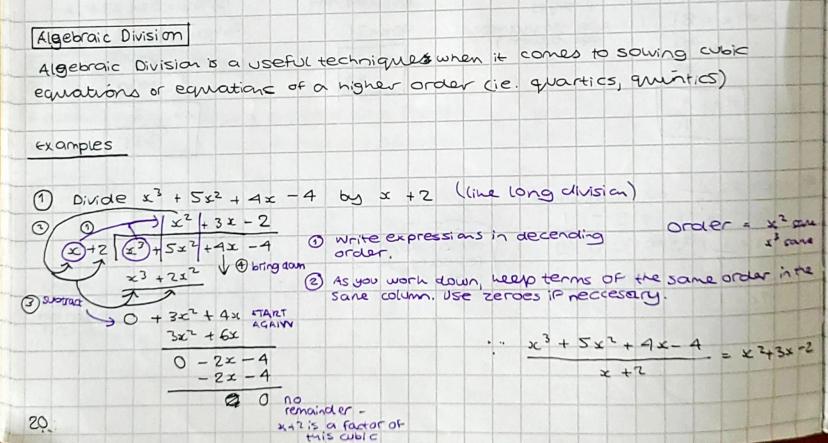 Algebraic Division
Algebraic Division is a useful techniques when it comes to solving cubic
equations or equations of a higher order (ie. quartics, quintics)
Examples
① Divide x³ + 5x² + 4x - 4 by x + 2 (like long division)
② ① x² + 3x - 2
x + 2 x³ + 5x² + 4x - 4
x³ + 2x² ④ bring down
③ subtract
0 + 3x² + 4x START AGAIN
3x² + 6x
0 - 2x - 4
- 2x - 4
0 no
remainder -
x+2 is a factor of
this cubic
① Write expressions in decending
order.
order = x² same
x³ same
② As you work down, keep terms of the same order in the
same column. Use zeroes if neccesary.
∴ x³ + 5x² + 4x - 4 / x + 2 = x² + 3x - 2
20.